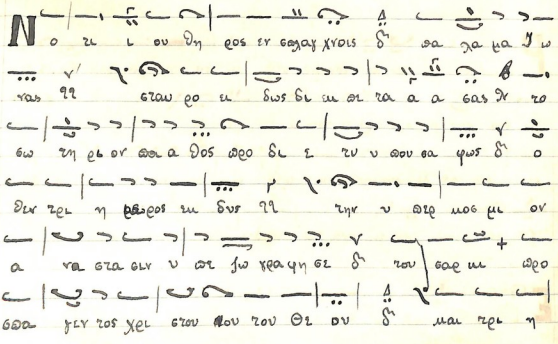 Ν ο τι ι ου θη ρος εν σπλαγχνοις δι πα λα μα Ι ω
νας σταυ ρο ει δως δι εκ πε τα α α σας το
σω τη ρι ον πα α θος προ δι ε τυ υ που σα φως δι ο
θεν τρι η μερος εκ δυς την υ περ κοσ μι ον
α να στα σιν υ πε ζω γρα φη σε δι του σαρ κι προ
σπα γεν τος χρι στου του Θε ου δι και τρι η